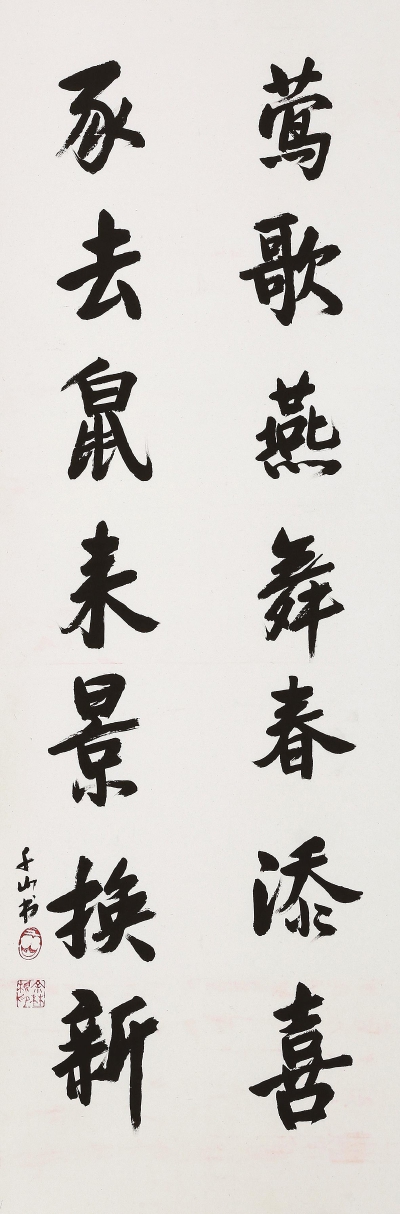 莺歌燕舞春添喜
豕去鼠来景换新
千山书